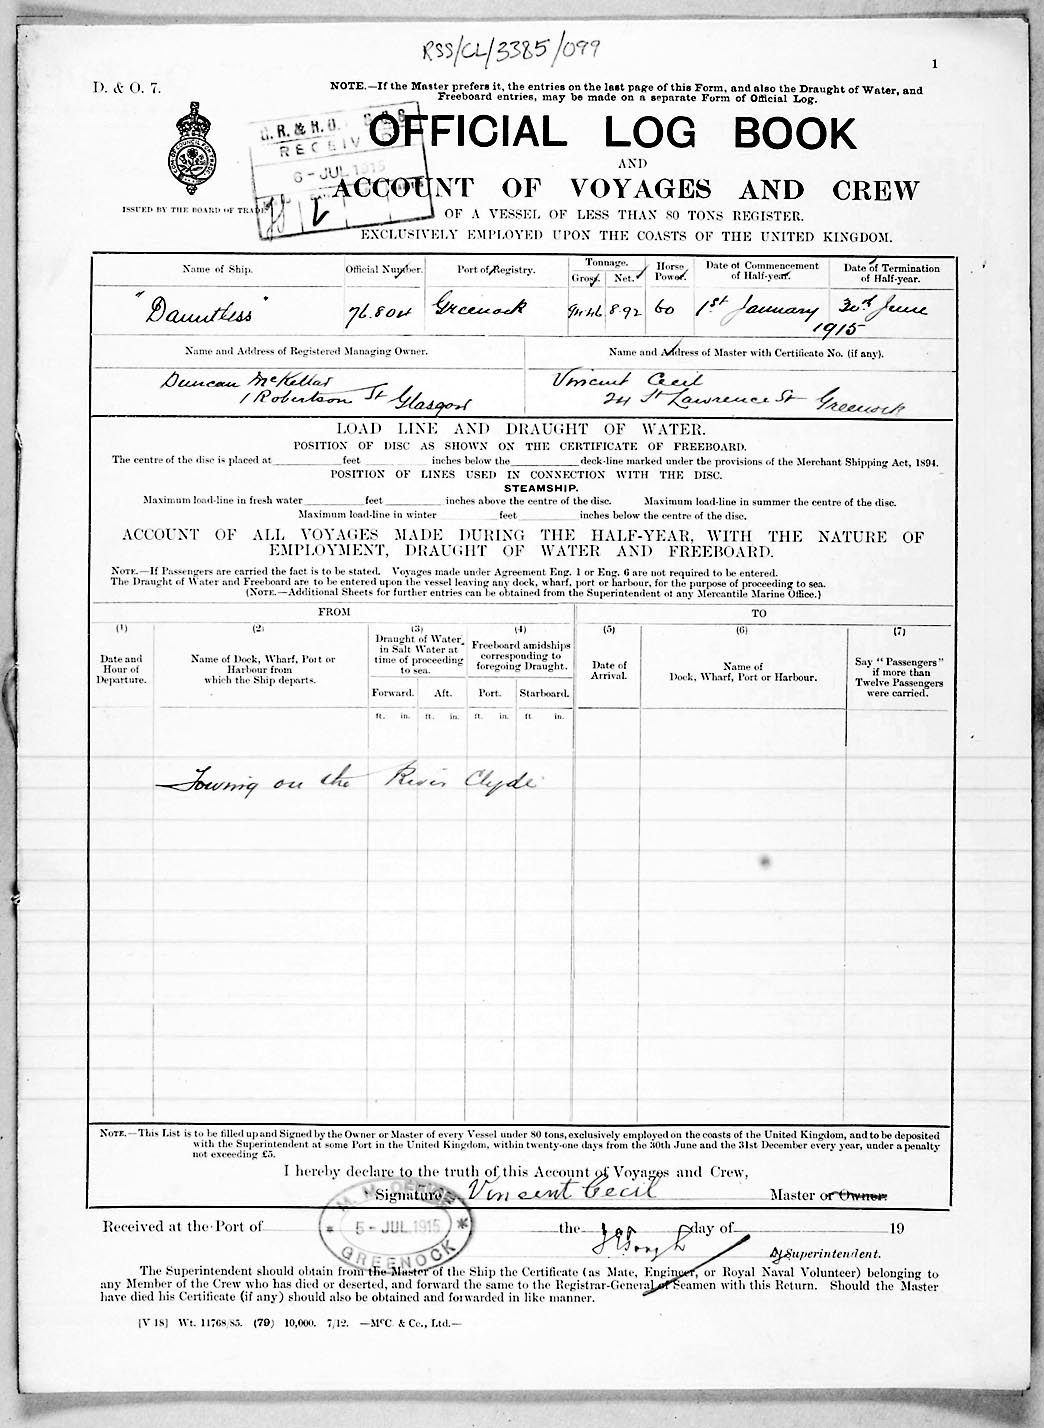 RSS/CL/3385/099
1
D. & O. 7.
NOTE.—If the Master prefers it, the entries on the last page of this Form, and also the Draught of Water, and
Freeboard entries, may be made on a separate Form of Official Log.
RECEIV
6 - JUL 1915
OFFICIAL LOG BOOK
AND
ACCOUNT OF VOYAGES AND CREW
ISSUED BY THE BOARD OF TRADE
OF A VESSEL OF LESS THAN 80 TONS REGISTER.
EXCLUSIVELY EMPLOYED UPON THE COASTS OF THE UNITED KINGDOM.
Name of Ship. Official Number. Port of Registry. Tonnage. Gross. Net. Horse Power. Date of Commencement of Half-year. Date of Termination of Half-year.
"Dauntless" 76.804 Greenock 8.92 60 1st January 30th June
1915
Name and Address of Registered Managing Owner. Name and Address of Master with Certificate No. (if any).
Duncan McKellar Vincent Cecil
1 Robertson St Glasgow 24 St Lawrence St Greenock
LOAD LINE AND DRAUGHT OF WATER.
POSITION OF DISC AS SHOWN ON THE CERTIFICATE OF FREEBOARD.
The centre of the disc is placed at feet inches below the deck-line marked under the provisions of the Merchant Shipping Act, 1894.
POSITION OF LINES USED IN CONNECTION WITH THE DISC.
STEAMSHIP.
Maximum load-line in fresh water feet inches above the centre of the disc. Maximum load-line in summer the centre of the disc.
Maximum load-line in winter feet inches below the centre of the disc.
ACCOUNT OF ALL VOYAGES MADE DURING THE HALF-YEAR, WITH THE NATURE OF
EMPLOYMENT, DRAUGHT OF WATER AND FREEBOARD.
NOTE.—If Passengers are carried the fact is to be stated. Voyages made under Agreement Eng. 1 or Eng. 6 are not required to be entered.
The Draught of Water and Freeboard are to be entered upon the vessel leaving any dock, wharf, port or harbour, for the purpose of proceeding to sea.
(NOTE.—Additional Sheets for further entries can be obtained from the Superintendent of any Mercantile Marine Office.)
FROM TO
(1) (2) (3) (4) (5) (6) (7)
Date and Hour of Departure.
Name of Dock, Wharf, Port or Harbour from which the Ship departs.
Draught of Water, in Salt Water at time of proceeding to sea.
Freeboard amidships corresponding to foregoing Draught.
Date of Arrival.
Name of Dock, Wharf, Port or Harbour.
Say "Passengers" if more than Twelve Passengers were carried.
Forward. Aft. Port. Starboard.
ft. in. ft. in. ft. in. ft in.
Towing on the River Clyde
NOTE.—This List is to be filled up and Signed by the Owner or Master of every Vessel under 80 tons, exclusively employed on the coasts of the United Kingdom, and to be deposited
with the Superintendent at some Port in the United Kingdom, within twenty-one days from the 30th June and the 31st December every year, under a penalty
not exceeding £5.
I hereby declare to the truth of this Account of Voyages and Crew,
Signature Vincent Cecil Master or Owner.
M. M. OFFICE
5 - JUL 1915
GREENOCK
Received at the Port of the day of 19
Dy Superintendent.
The Superintendent should obtain from the Master of the Ship the Certificate (as Mate, Engineer, or Royal Naval Volunteer) belonging to
any Member of the Crew who has died or deserted, and forward the same to the Registrar-General of Seamen with this Return. Should the Master
have died his Certificate (if any) should also be obtained and forwarded in like manner.
[V 18] Wt. 11768/85. (79) 10,000. 7/12. —McC. & Co., Ltd.—